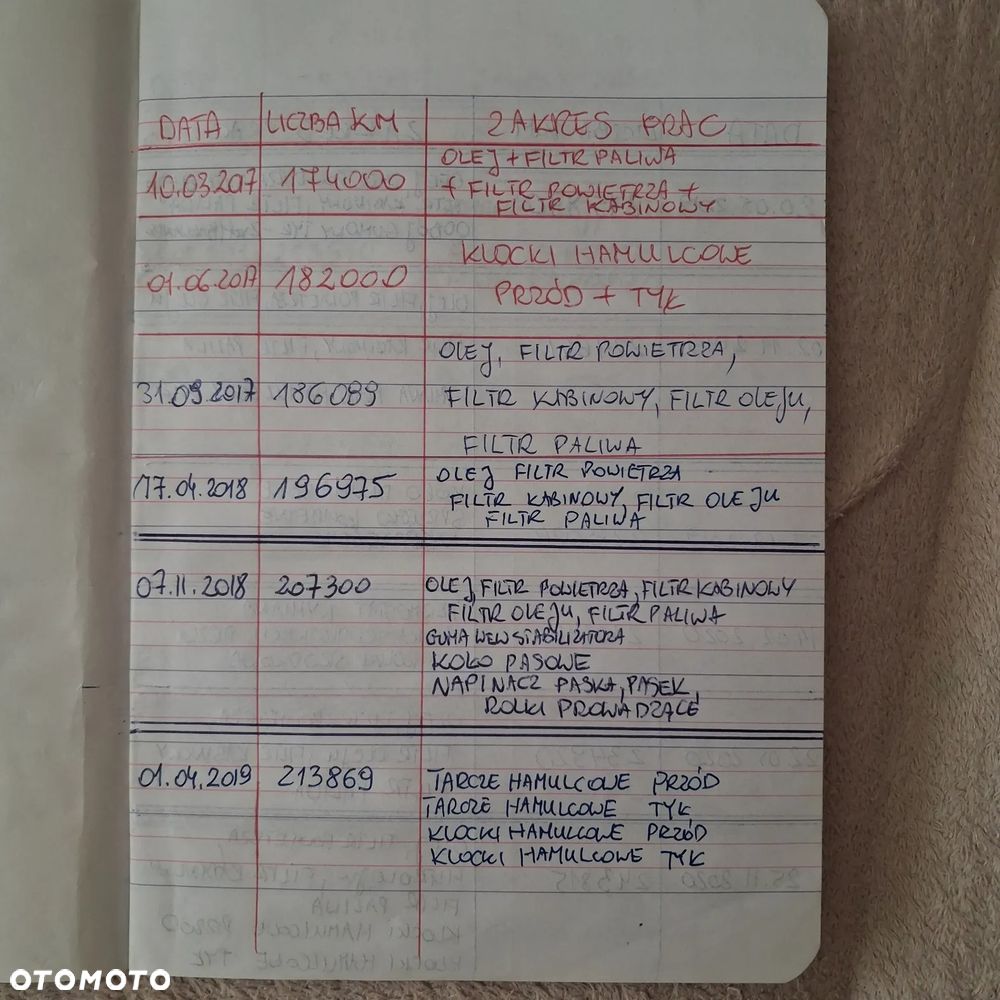 DATA LICZBA KM ZAKRES PRAC
OLEJ + FILTR PALIWA
10.03.207 174000 + FILTR POWIETRZA +
FILTR KABINOWY
KLOCKI HAMULCOWE
01.06.2017 182000 PRZÓD + TYŁ
OLEJ, FILTR POWIETRZA,
31.09.2017 186089 FILTR KABINOWY, FILTR OLEJU,
FILTR PALIWA
OLEJ FILTR POWIETRZA
17.04.2018 196975 FILTR KABINOWY, FILTR OLEJU
FILTR PALIWA
07.11.2018 207300 OLEJ, FILTR POWIETRZA, FILTR KABINOWY
FILTR OLEJU, FILTR PALIWA
GUMA WEW STABILIZATORA
KOŁO PASOWE
NAPINACZ PASKA, PASEK,
ROLKI PROWADZĄCE
01.04.2019 213869 TARCZE HAMULCOWE PRZÓD
TARCZE HAMULCOWE TYŁ
KLOCKI HAMULCOWE PRZÓD
KLOCKI HAMULCOWE TYŁ
OTOMOTO